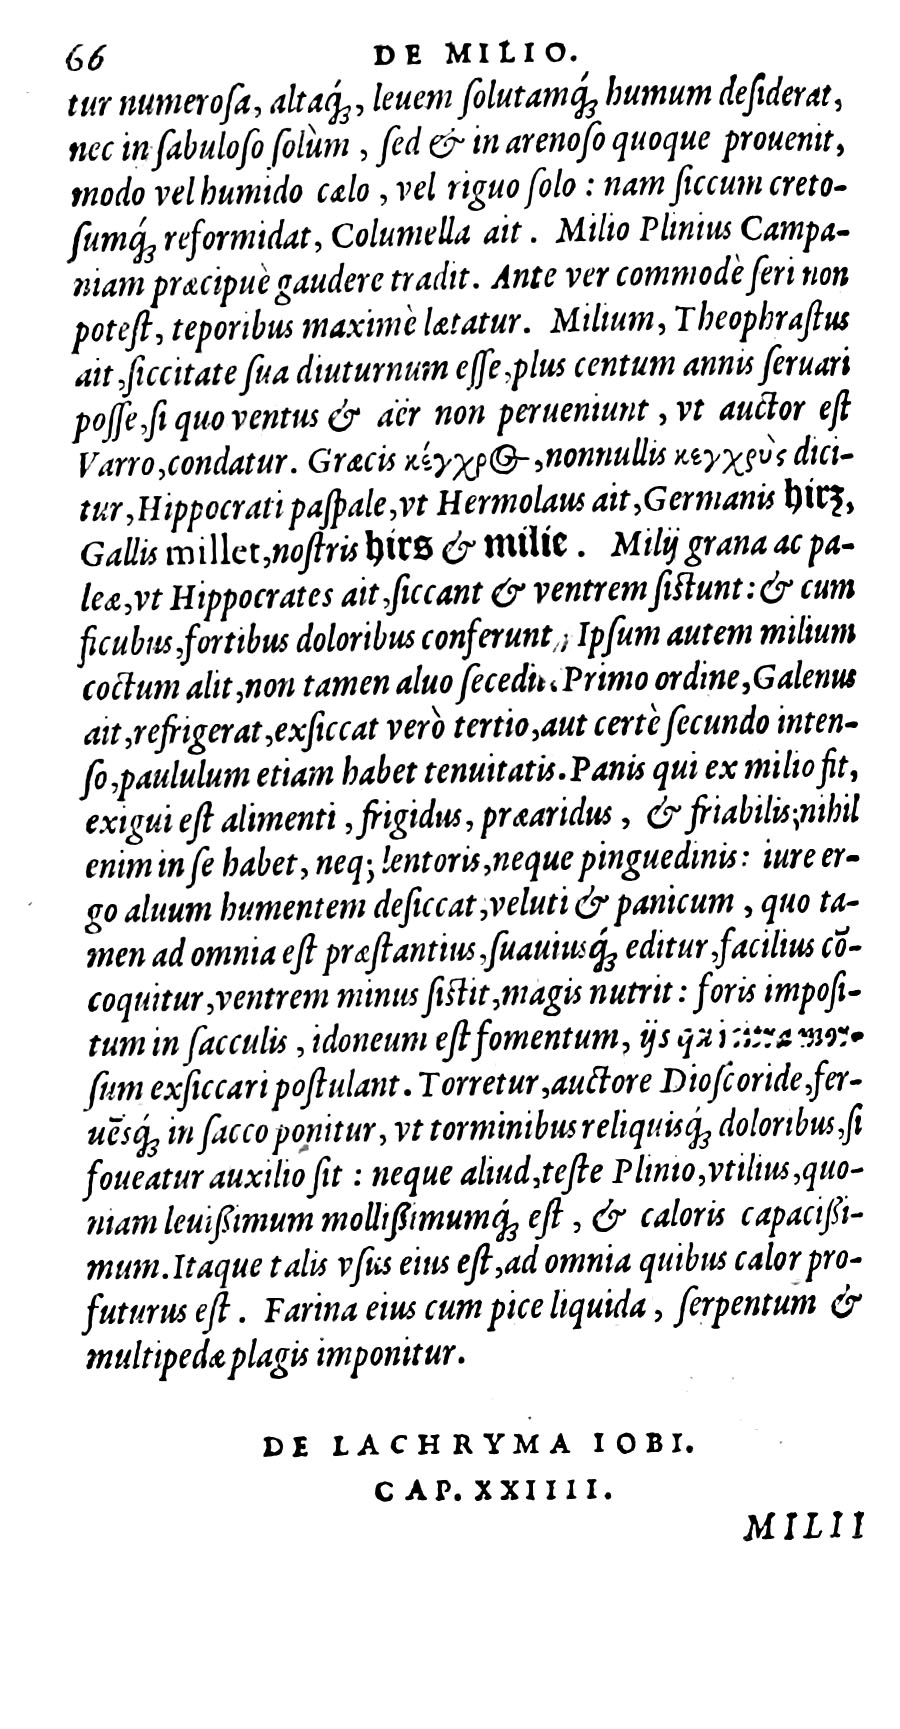 66 DE MILIO.
tur numeroſa, altaq́ꝫ, leuem ſolutamq́ꝫ humum deſiderat,
nec in ſabuloſo ſolùm, ſed & in arenoſo quoque prouenit,
modo vel humido cælo, vel riguo ſolo: nam ſiccum creto-
ſumq́ꝫ reformidat, Columella ait. Milio Plinius Campa-
niam præcipuè gaudere tradit. Ante ver commodè ſeri non
poteſt, teporibus maximè lætatur. Milium, Theophraſtus
ait, ſiccitate ſua diuturnum eſſe, plus centum annis ſeruari
poſſe, ſi quo ventus & aër non perueniunt, vt auctor eſt
Varro, condatur. Græcis κέγχρος, nonnullis κεγχρὺς dici-
tur, Hippocrati paſpale, vt Hermolaus ait, Germanis hirꝫ,
Gallis millet, noſtris hirs & milie. Milij grana ac pa-
leæ, vt Hippocrates ait, ſiccant & ventrem ſiſtunt: & cum
ficubus, fortibus doloribus conferunt; Ipſum autem milium
coctum alit, non tamen aluo ſecedit. Primo ordine, Galenus
ait, refrigerat, exſiccat verò tertio, aut certè ſecundo inten-
ſo, paululum etiam habet tenuitatis. Panis qui ex milio fit,
exigui eſt alimenti, frigidus, præaridus, & friabilis; nihil
enim in ſe habet, neq; lentoris, neque pinguedinis: iure er-
go aluum humentem deſiccat, veluti & panicum, quo ta-
men ad omnia eſt præſtantius, ſuauiusq́ꝫ editur, facilius cō-
coquitur, ventrem minus ſiſtit, magis nutrit: foris impoſi-
tum in ſacculis, idoneum eſt fomentum, ijs
ſum exſiccari poſtulant. Torretur, auctore Dioſcoride, fer-
uēsq́ꝫ in ſacco ponitur, vt torminibus reliquisq́ꝫ doloribus, ſi
foueatur auxilio ſit: neque aliud, teſte Plinio, vtilius, quo-
niam leuiſſimum molliſſimumq́ꝫ eſt, & caloris capaciſſi-
mum. Itaque talis vſus eius eſt, ad omnia quibus calor pro-
futurus eſt. Farina eius cum pice liquida, ſerpentum &
multipedæ plagis imponitur.
DE LACHRYMA IOBI.
CAP. XXIIII.
MILII